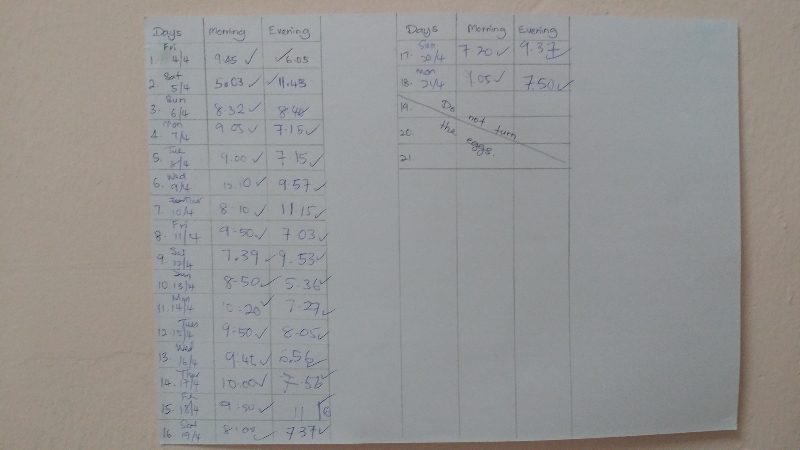 Days Morning Evening
Fri
1. 4/4 9.45 ✓ ✓6.05
Sat
2. 5/4 5.03 ✓ ✓11.43
Sun
3. 6/4 8.32 ✓
Mon
4. 7/4 9.05 ✓ 7.15 ✓
Tue
5. 8/4 9.00 ✓ 7.15 ✓
Wed
6. 9/4 9.57 ✓
7. 10/4 8.10 ✓ 11.15 ✓
Fri
8. 11/4 9.50 ✓ 7.03 ✓
Sat
9. 12/4 7.39 ✓ 9.53 ✓
Sun
10. 13/4 8.50 ✓ 5.36 ✓
Mon
11. 14/4 7.27 ✓
Tues
12. 15/4 9.50 ✓ 8.05 ✓
Wed
13. 16/4 6.56 ✓
Thur
14. 17/4 10.00 ✓ 7.56 ✓
Fri
15. 18/4 9.50 ✓
Sat
16. 19/4 8.05 ✓ 7.37 ✓
Days Morning Evening
Sun
17. 20/4 7.20 ✓ 9.37 ✓
Mon
18. 21/4 7.50 ✓
19. Do not turn
20. the eggs.
21.